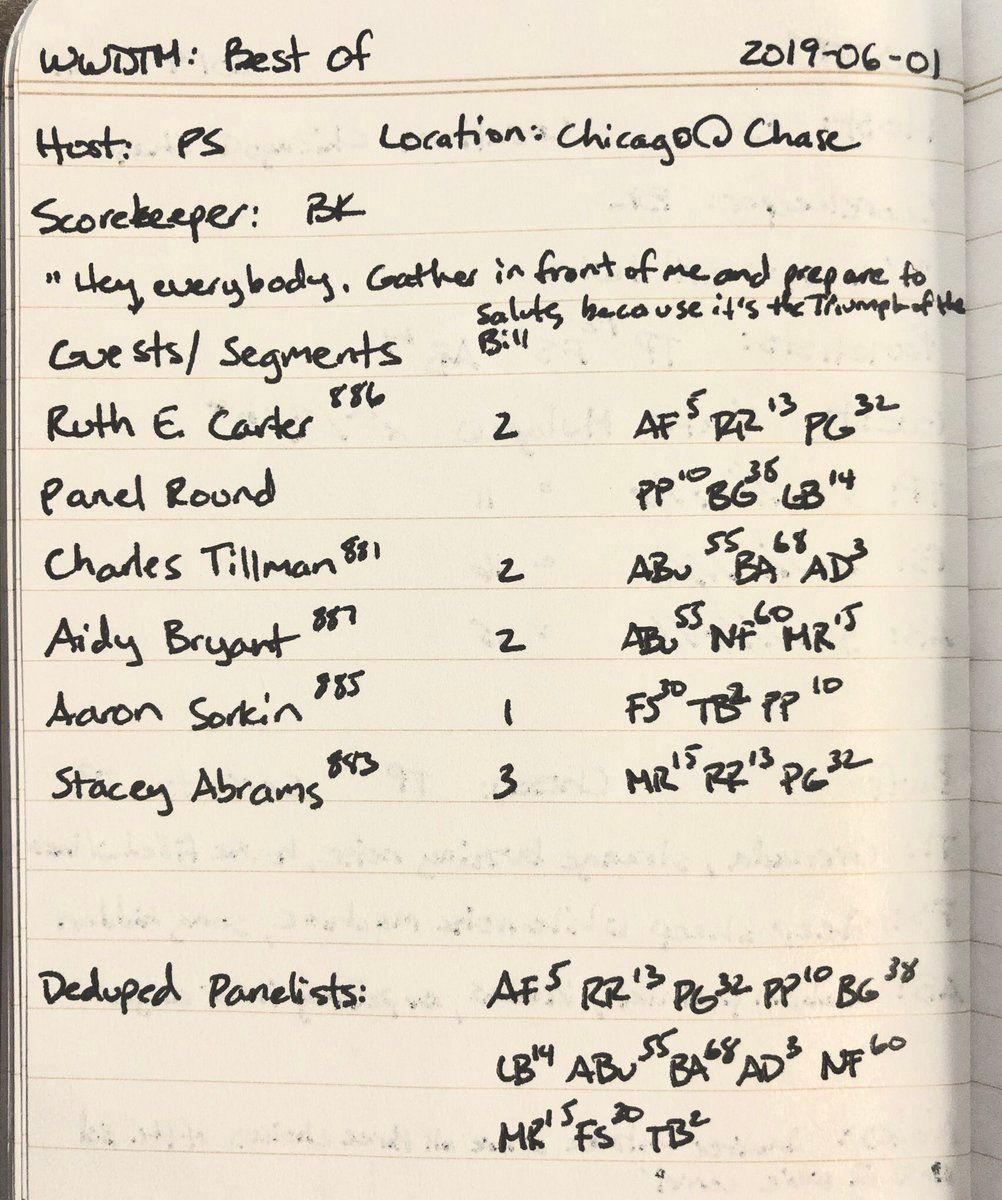 WWDTM: Best of 2019-06-01
Host: PS Location: Chicago@ Chase
Scorekeeper: BK
"Hey, everybody. Gather in front of me and prepare to
salute, because it's the Triumph of the
Bill
Guests/Segments
Ruth E. Carter 886 2 AF 5 RR 13 PG 32
Panel Round PP 10 BG 38 LB 14
Charles Tillman 881 2 ABu 55 BA 68 AD 3
Aidy Bryant 887 2 ABu 55 NF 60 MR 15
Aaron Sorkin 885 1 FS 30 TB 2 PP 10
Stacey Abrams 883 3 MR 15 RR 13 PG 32
Deduped Panelists: AF 5 RR 13 PG 32 PP 10 BG 38
LB 14 ABu 55 BA 68 AD 3 NF 60
MR 15 FS 30 TB 2